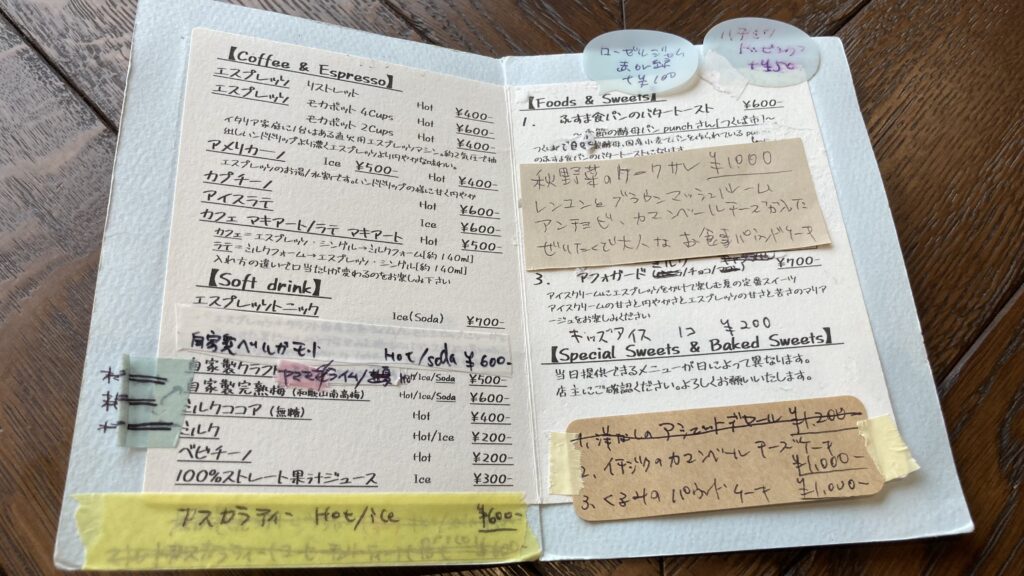 【Coffee & Espresso】
エスプレッソ リストレット Hot ¥400-
エスプレッソ モカポット 4Cups Hot ¥600-
モカポット 2Cups Hot ¥400-
イタリア家庭に1台はある直火用エスプレッソマシン。約2気圧で抽
出しハンドドリップより濃くエスプレッソより円やかな味わい。
アメリカーノ Ice ¥500- Hot ¥400-
エスプレッソのお湯/水割です。ハンドドリップの様に甘く円やか
カプチーノ Hot ¥600-
アイスラテ Ice ¥600-
カフェ マキアート/ラテ マキアート Hot ¥500-
カフェ=エスプレッソ・シングル→ミルクフォーム[約140ml]
ラテ=ミルクフォーム→エスプレッソ・シングル[約140ml]
入れ方の違いで口当たりが変わるのをお楽しみ下さい
【Soft drink】
エスプレッソトニック Ice(Soda) ¥700-
自家製ベルガモット Hot/soda ¥600-
自家製クラフト ライム/ Hot/Ice/Soda ¥500-
自家製完熟梅(和歌山南高梅) Hot/Ice/Soda ¥600-
ミルクココア(無糖) Hot ¥400-
ミルク Hot/Ice ¥200-
ベビチーノ Hot ¥200-
100%ストレート果汁ジュース Ice ¥300-
Hot/ice ¥600-
ローゼルジャム
+¥100
ハチミツ
+¥50
【Foods & Sweets】
1. ふすま食パンのバタートースト ¥600-
〜季節の酵母パン punchさん[つくば市]〜
のふすま食パンのバタートーストになります
秋野菜のケークサレ ¥1000
レンコンとブラウンマッシュルーム
アンチョビ・カマンベールチーズが入った
ぜいたくで大人なお食事パウンドケーキ
3. アフォガード ¥700-
アイスクリームにエスプレッソをかけて楽しむ夏の定番スイーツ
アイスクリームの甘さと円やかさとエスプレッソの甘さと苦さのマリア
ージュをお楽しみください
キッズアイス 1コ ¥200
【Special Sweets & Baked Sweets】
当日提供できるメニューが日によって異なります。
店主にご確認ください。よろしくお願いいたします。
1. 洋なしのアシェットデセール ¥1,200-
2. イチジクのカマンベールチーズケーキ ¥1,000-
3. くるみのパウンドケーキ ¥1,000-